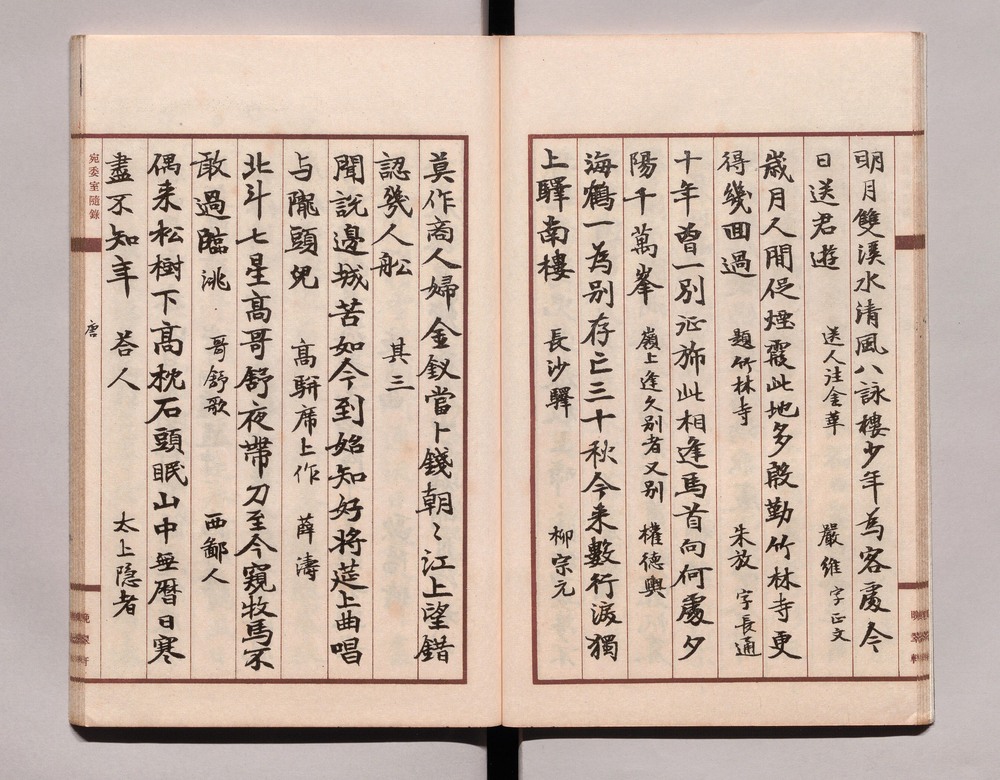 明月雙溪水清風八詠樓少年為客處今
日送君遊　送人往金華　嚴維　字正文
歲月人間促煙霞此地多殷勤竹林寺更
得幾回過　題竹林寺　朱放　字長通
十年曾一別征旆此相逢馬首向何處夕
陽千萬峯　嶺上逢久別者又別　權德輿
海鶴一為別存亡三十秋今来數行淚獨
上驛南樓　長沙驛　柳宗元
莫作商人婦金釵當卜錢朝〻江上望錯
認幾人船　其三
聞說邊城苦如今到始知好將筵上曲唱
与隴頭兒　高駢席上作　薛濤
北斗七星高哥舒夜帶刀至今窺牧馬不
敢過臨洮　哥舒歌　西鄙人
偶来松樹下高枕石頭眠山中無曆日寒
盡不知年　荅人　太上隐者
宛委室隨錄
唐